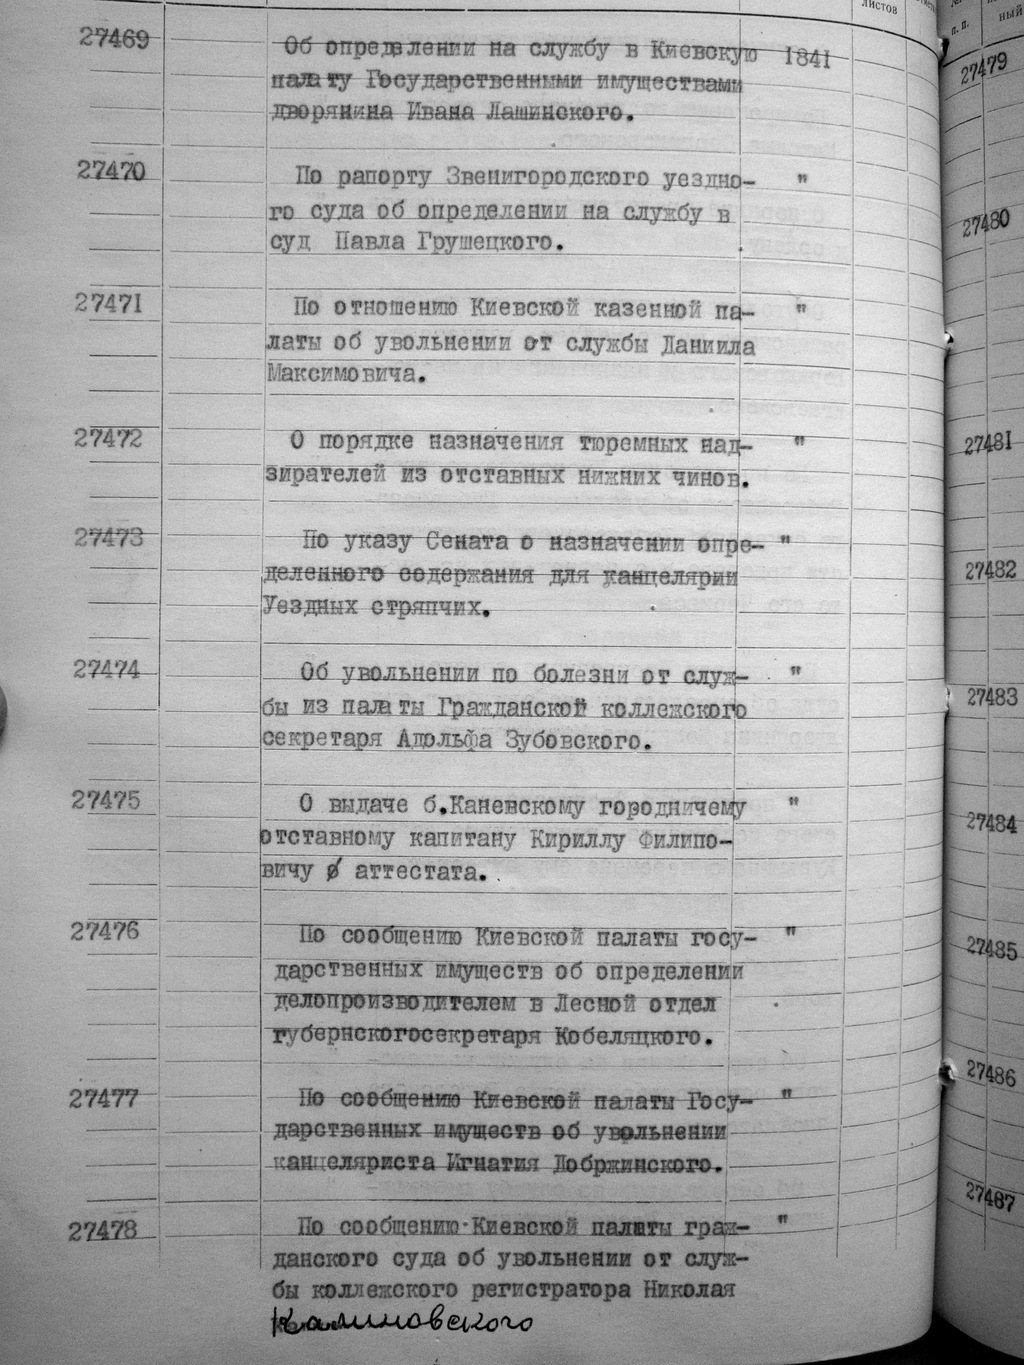 листов
п. п.
ный
27469 Об определении на службу в Киевскую 1841
палату Государственными имуществами
дворянина Ивана Лашинского.
27470 По рапорту Звенигородского уездно- "
го суда об определении на службу в
суд Павла Грушецкого.
27471 По отношению Киевской казенной па- "
латы об увольнении от службы Даниила
Максимовича.
27472 О порядке назначения тюремных над- "
зирателей из отставных нижних чинов.
27473 По указу Сената о назначении опре- "
деленного содержания для канцелярии
Уездных стряпчих.
27474 Об увольнении по болезни от служ- "
бы из палаты Гражданской коллежского
секретаря Адольфа Зубовского.
27475 О выдаче б.Каневскому городничему "
отставному капитану Кириллу Филипо-
вичу аттестата.
27476 По сообщению Киевской палаты госу- "
дарственных имуществ об определении
делопроизводителем в Лесной отдел
губернскогосекретаря Кобеляцкого.
27477 По сообщению Киевской палаты Госу- "
дарственных имуществ об увольнении
канцеляриста Игнатия Добржинского.
27478 По сообщению Киевской палаты граж- "
данского суда об увольнении от служ-
бы коллежского регистратора Николая
Калиновского
27479
27480
27481
27482
27483
27484
27485
27486
27487